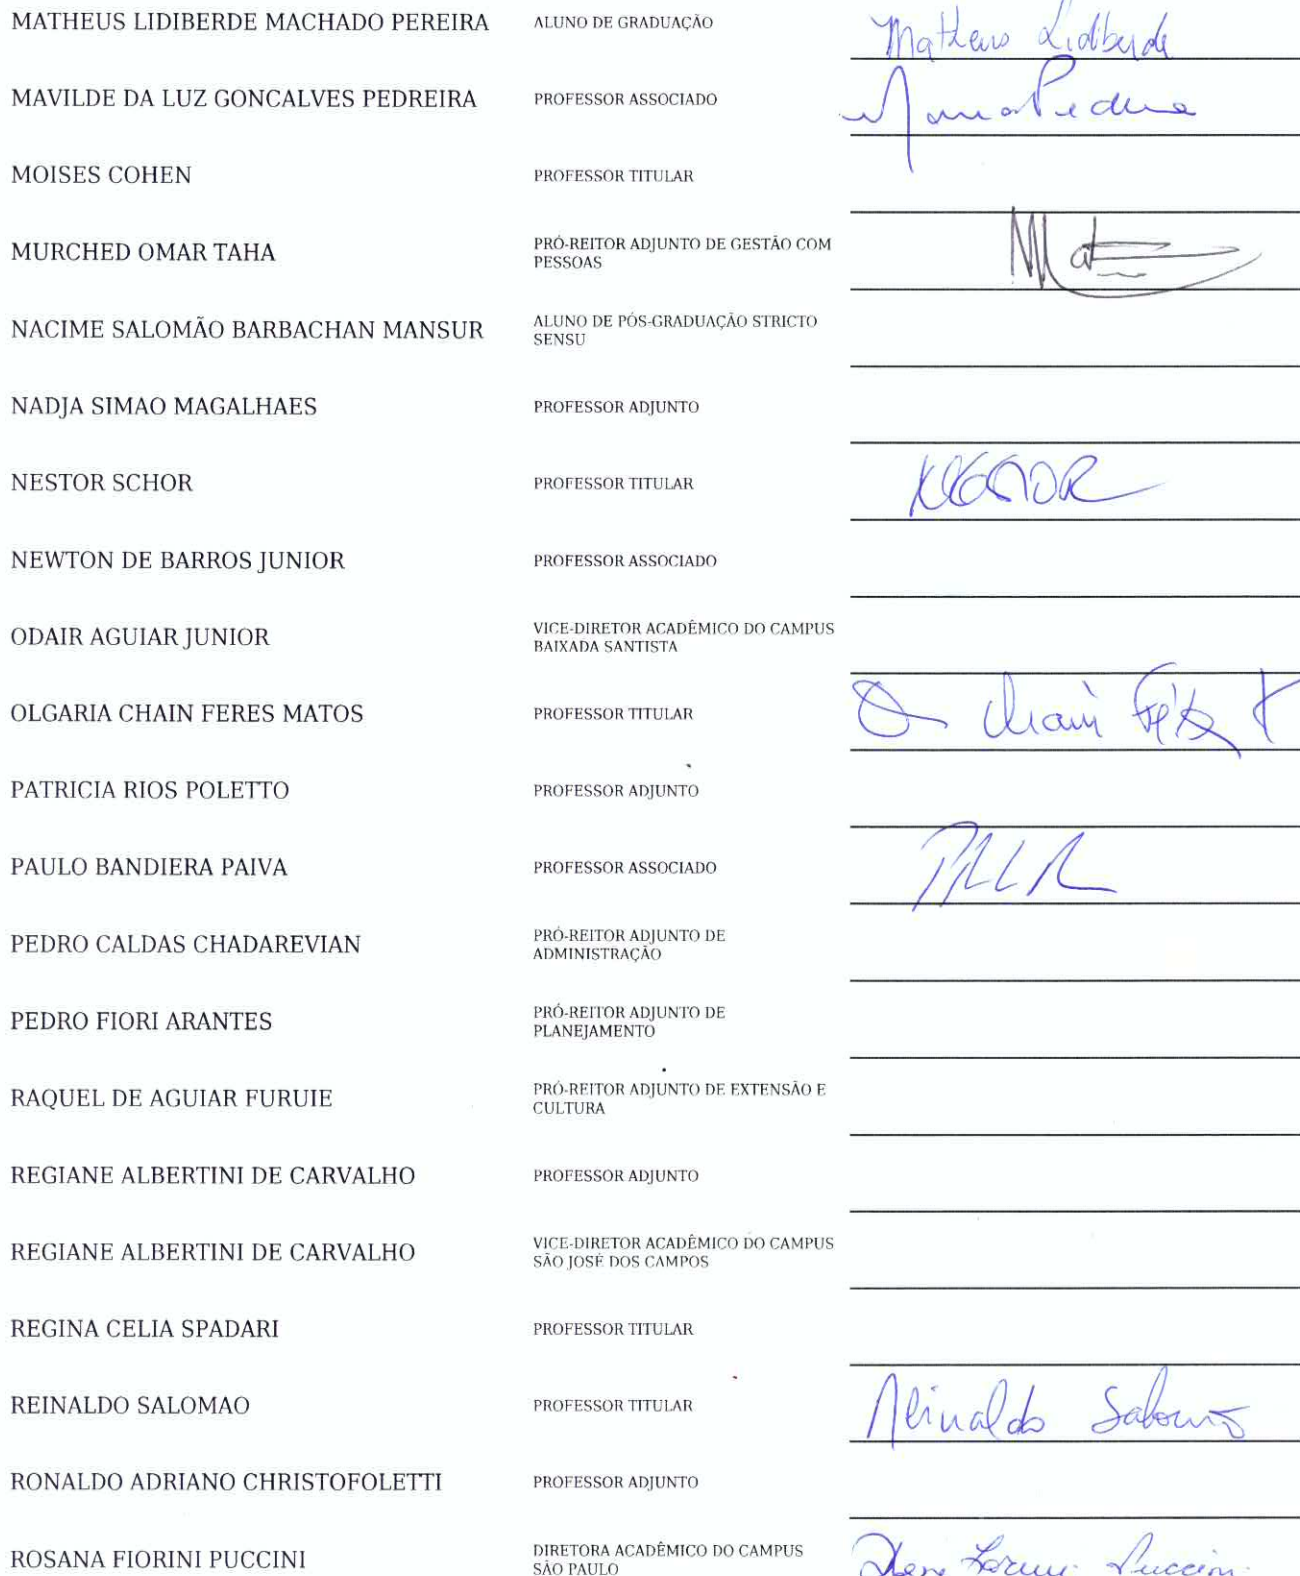 MATHEUS LIDIBERDE MACHADO PEREIRA ALUNO DE GRADUAÇÃO Matheus Lidiberde
MAVILDE DA LUZ GONCALVES PEDREIRA PROFESSOR ASSOCIADO
MOISES COHEN PROFESSOR TITULAR
MURCHED OMAR TAHA PRÓ-REITOR ADJUNTO DE GESTÃO COM
PESSOAS
NACIME SALOMÃO BARBACHAN MANSUR ALUNO DE PÓS-GRADUAÇÃO STRICTO
SENSU
NADJA SIMAO MAGALHAES PROFESSOR ADJUNTO
NESTOR SCHOR PROFESSOR TITULAR
NEWTON DE BARROS JUNIOR PROFESSOR ASSOCIADO
ODAIR AGUIAR JUNIOR VICE-DIRETOR ACADÊMICO DO CAMPUS
BAIXADA SANTISTA
OLGARIA CHAIN FERES MATOS PROFESSOR TITULAR
PATRICIA RIOS POLETTO PROFESSOR ADJUNTO
PAULO BANDIERA PAIVA PROFESSOR ASSOCIADO
PEDRO CALDAS CHADAREVIAN PRÓ-REITOR ADJUNTO DE
ADMINISTRAÇÃO
PEDRO FIORI ARANTES PRÓ-REITOR ADJUNTO DE
PLANEJAMENTO
RAQUEL DE AGUIAR FURUIE PRÓ-REITOR ADJUNTO DE EXTENSÃO E
CULTURA
REGIANE ALBERTINI DE CARVALHO PROFESSOR ADJUNTO
REGIANE ALBERTINI DE CARVALHO VICE-DIRETOR ACADÊMICO DO CAMPUS
SÃO JOSÉ DOS CAMPOS
REGINA CELIA SPADARI PROFESSOR TITULAR
REINALDO SALOMAO PROFESSOR TITULAR Reinaldo Salomão
RONALDO ADRIANO CHRISTOFOLETTI PROFESSOR ADJUNTO
ROSANA FIORINI PUCCINI DIRETORA ACADÊMICO DO CAMPUS
SÃO PAULO